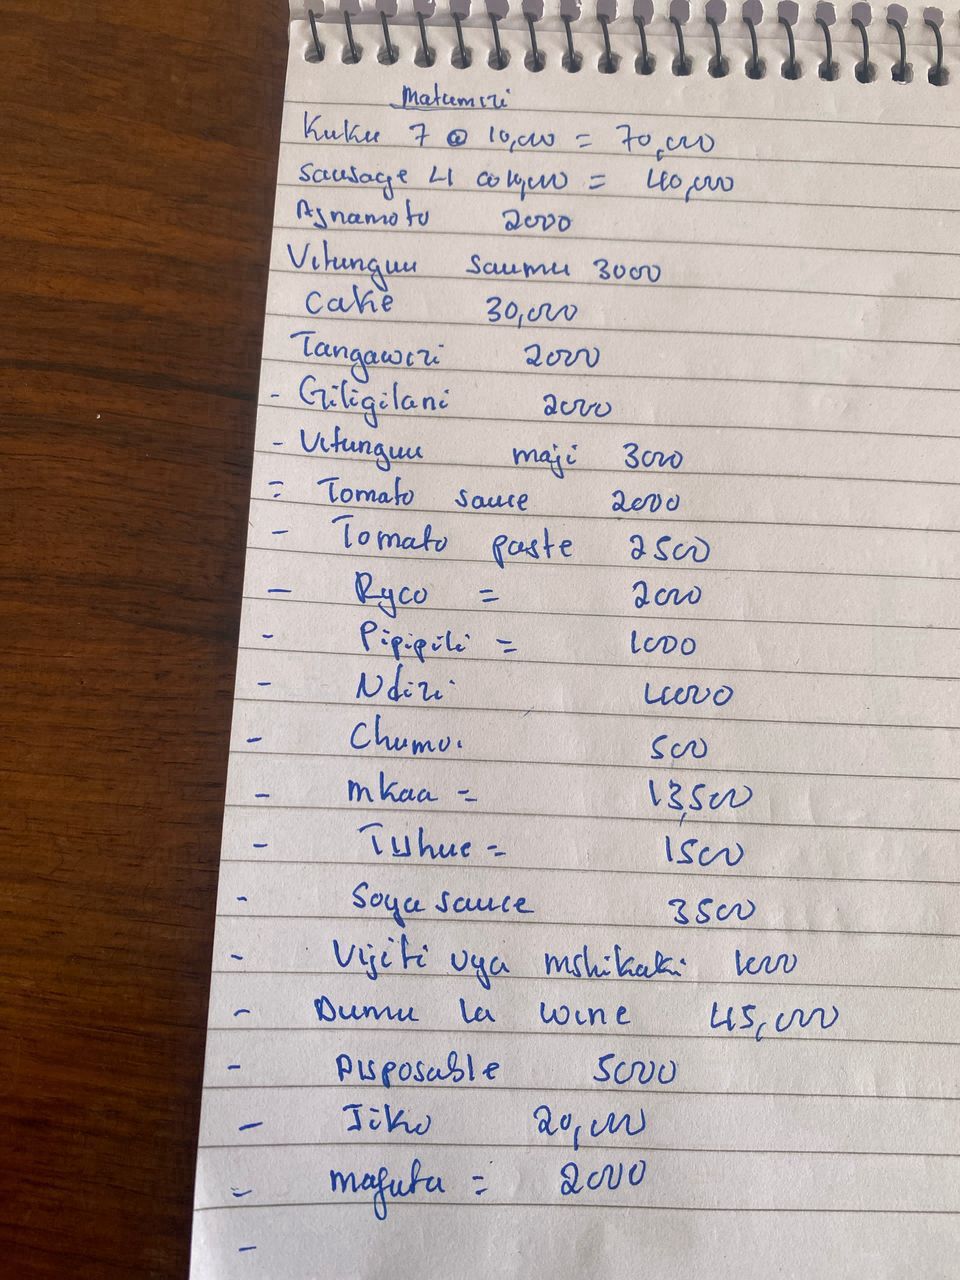 Matumizi
Kuku 7 @ 10,000 = 70,000
Sausage 4 @ 10,000 = 40,000
Ajnamoto 2000
Vitunguu saumu 3000
Cake 30,000
Tangawizi 2000
- Giligilani 2000
- Vitunguu maji 3000
= Tomato sauce 2000
- Tomato paste 2500
- Ryco = 2000
- Pipipili = 1000
- Ndizi 4000
- Chumvi 500
- mkaa = 13,500
- Tishue = 1500
- Soya sauce 3500
- Vijiti vya mshikaki 1000
- Dumu la wine 45,000
- Disposable 5000
- Jiko 20,000
- mafuta = 2000
-